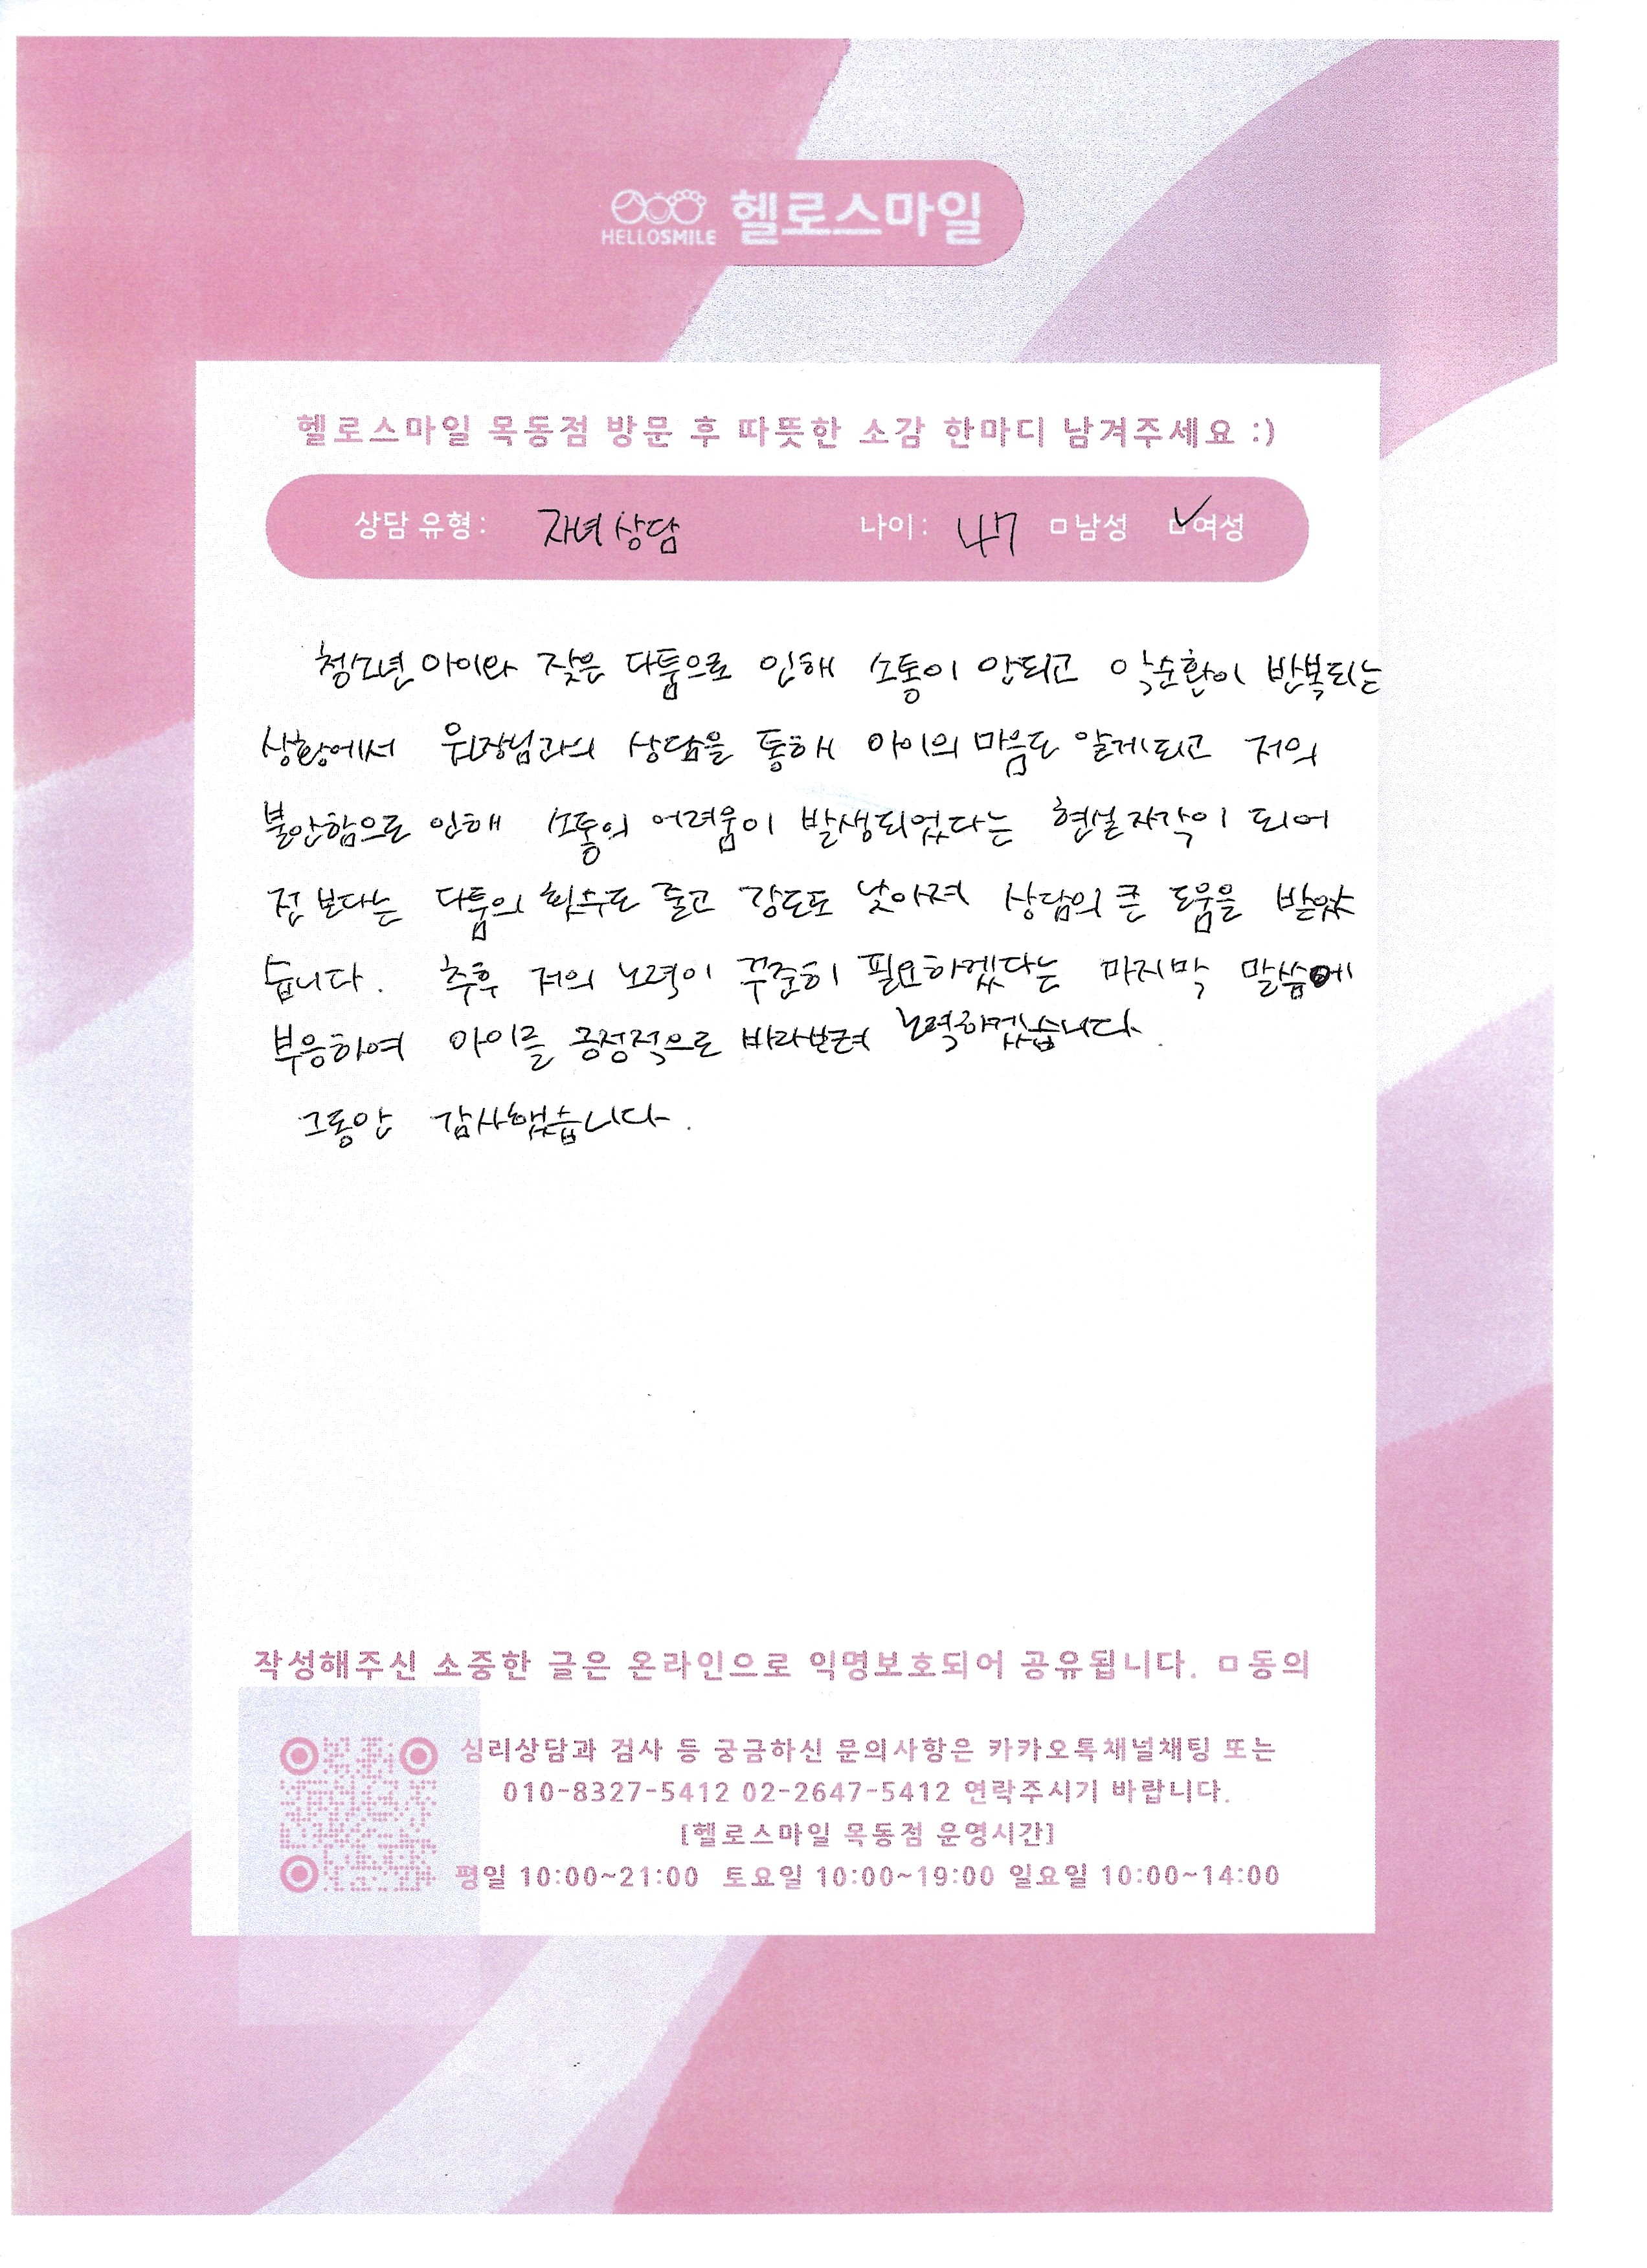 HELLOSMILE 헬로스마일
헬로스마일 목동점 방문 후 따뜻한 소감 한마디 남겨주세요 :)
상담 유형: 자녀상담 나이: 47 □남성 ☑여성
청소년 아이와 잦은 다툼으로 인해 소통이 안되고 악순환이 반복되는
상황에서 원장님과의 상담을 통해 아이의 마음도 알게되고 저의
불안함으로 인해 소통의 어려움이 발생되었다는 현실자각이 되어
전 보다는 다툼의 횟수도 줄고 강도도 낮아져 상담의 큰 도움을 받았
습니다. 추후 저의 노력이 꾸준히 필요하겠다는 마지막 말씀에
부응하여 아이를 긍정적으로 바라보려 노력하겠습니다.
그동안 감사했습니다.
작성해주신 소중한 글은 온라인으로 익명보호되어 공유됩니다. □동의
심리상담과 검사 등 궁금하신 문의사항은 카카오톡채널채팅 또는
010-8327-5412 02-2647-5412 연락주시기 바랍니다.
[헬로스마일 목동점 운영시간]
평일 10:00~21:00 토요일 10:00~19:00 일요일 10:00~14:00